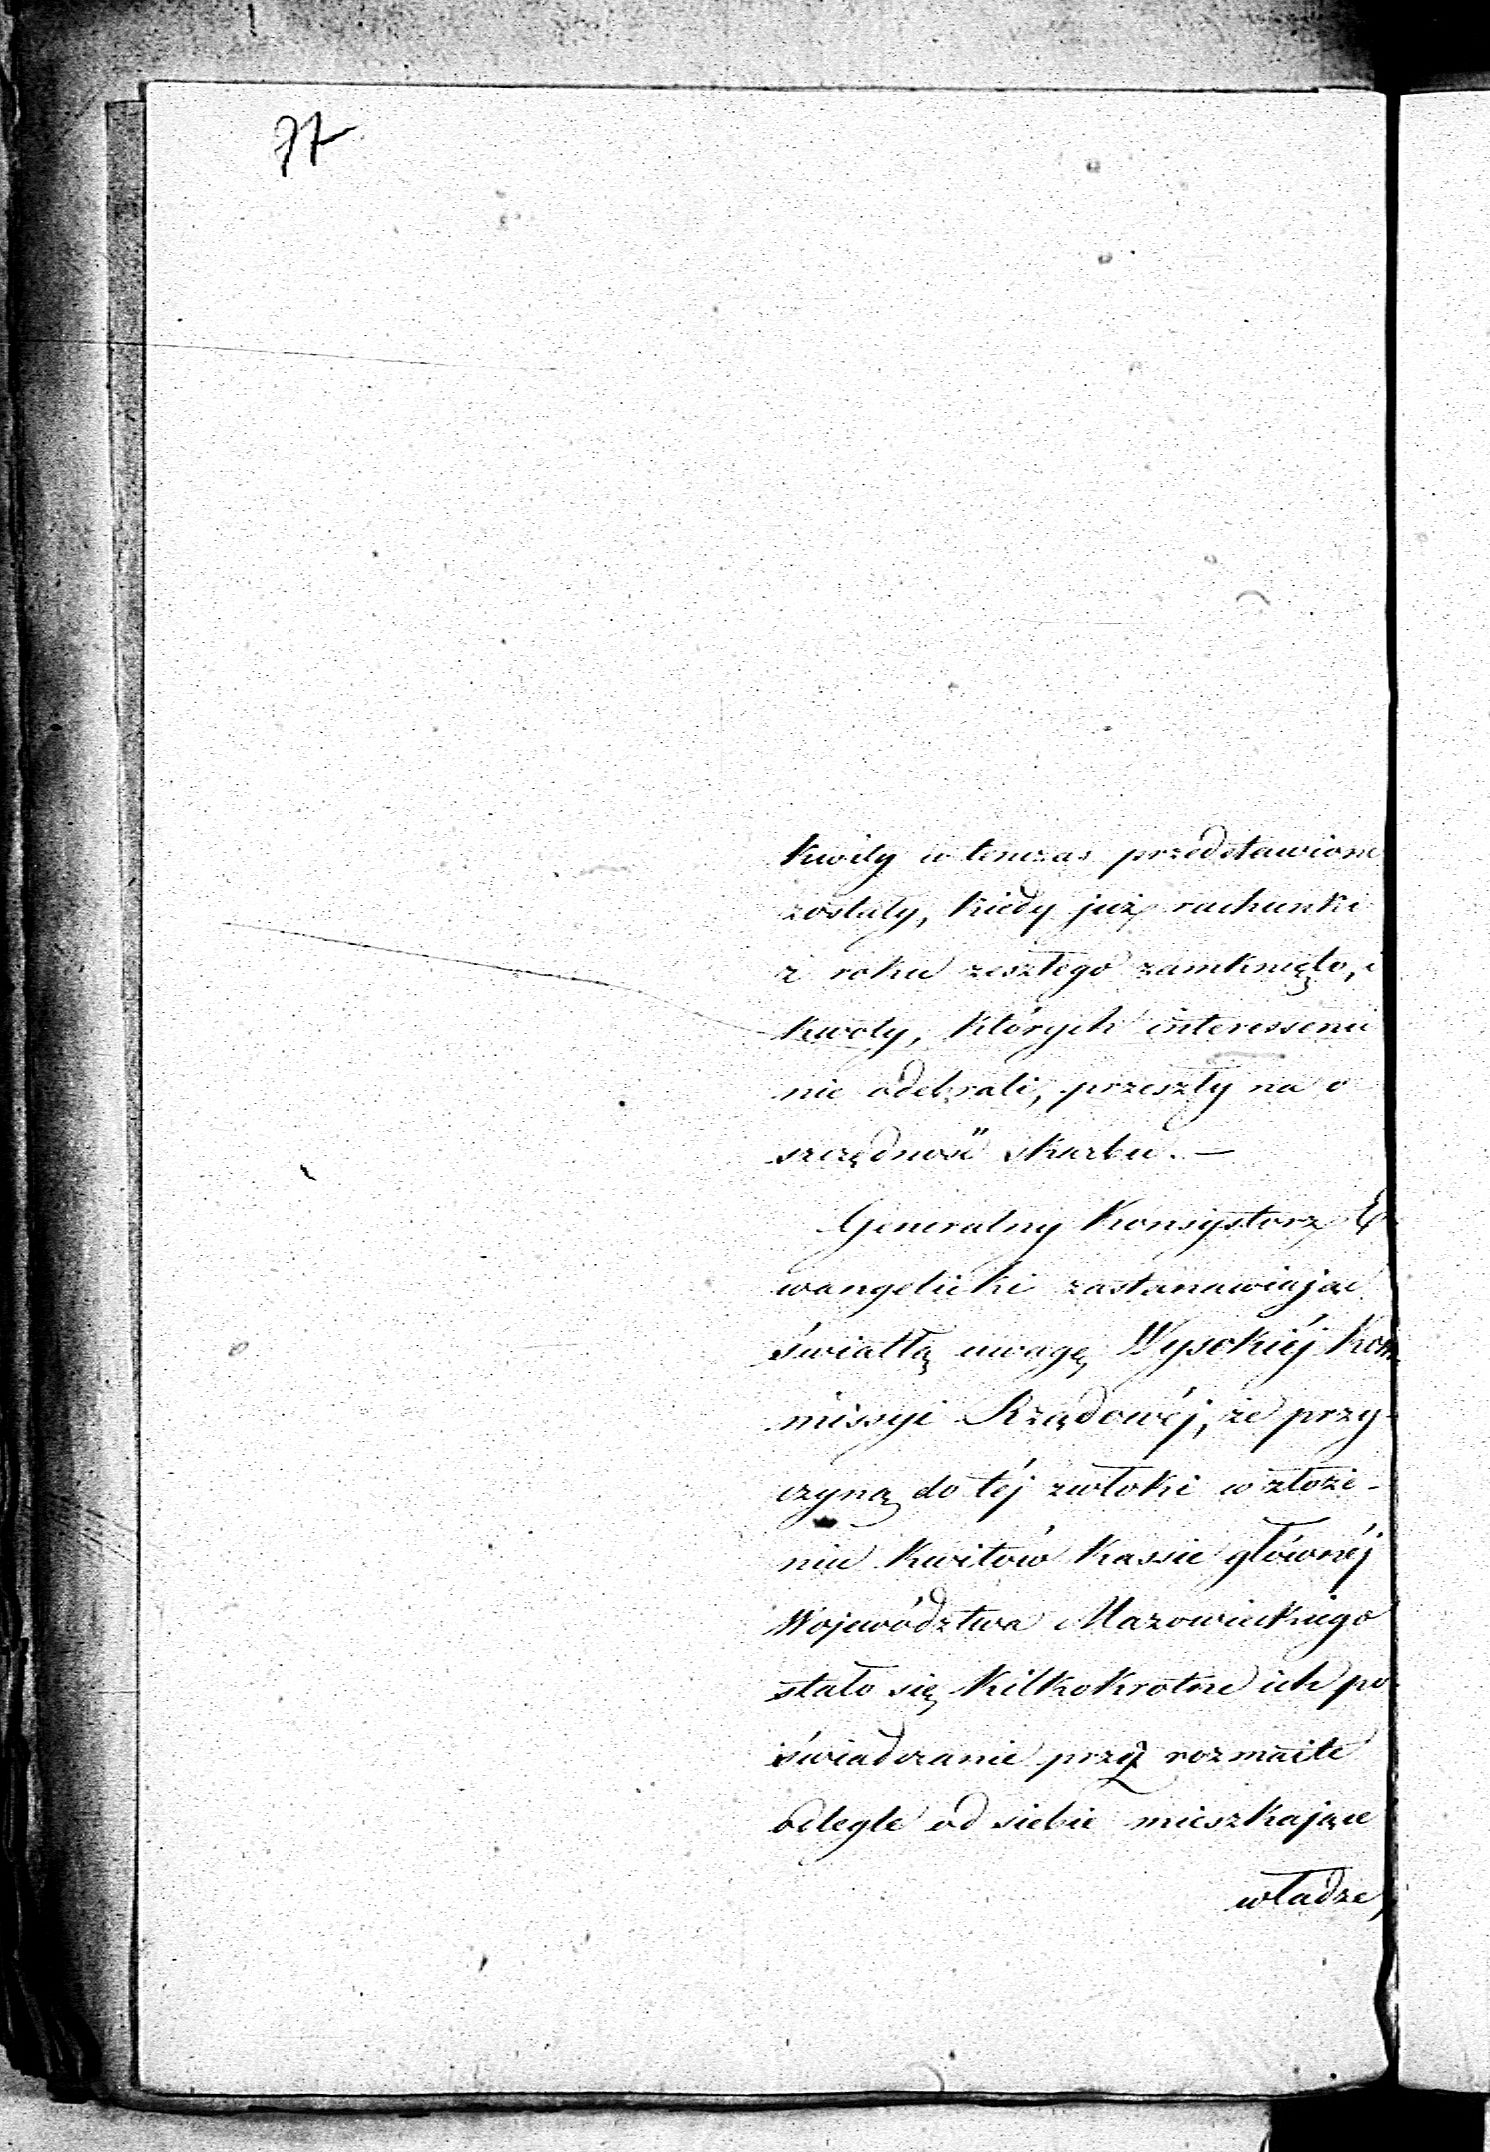 77
kwity w tenczas przedstawione
zostały, kiedy już rachunki
z roku zeszłego zamknięto, i
kwoty, których interessenci
nie odebrali, przeszły na o
szczędność skarbu. —
Generalny Konsystorz E-
wangelicki zastanawiając
światłą uwagę Wysokiéj Kom-
missyi Rządowéj, że przy-
czyną do téj zwłoki w złoże-
niu kwitów Kassie głównéj
Województwa Mazowieckiego
stało się kilkokrotne ich po-
świadczanie przez rozmaite
odległe od siebie mieszkające
władze,